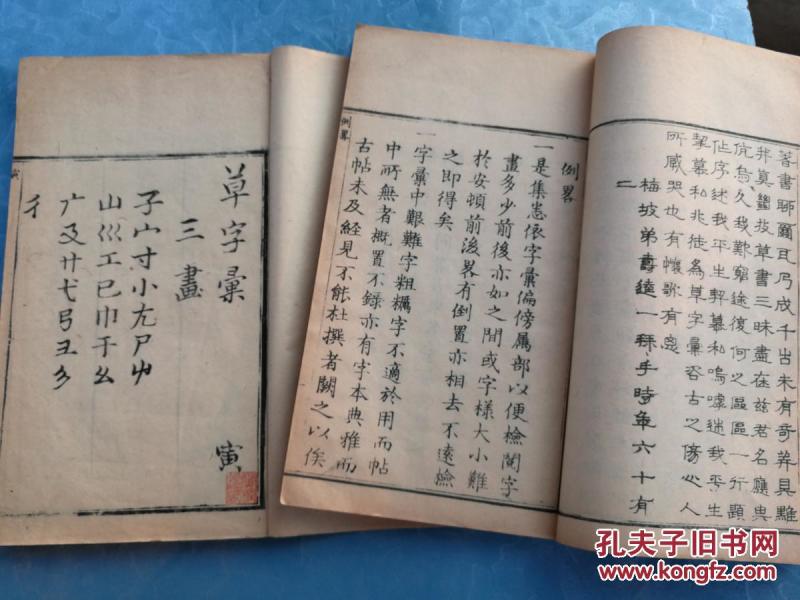 著書聊爾 乃成千 未有奇葬具雖
非真 故草書三昧盡在玆君名應與
伉 久我歎窮途復何之區區一行題
字述我平生 墓私嗚嘑述我平生
墓私兆徙為草字彙 古之傷心人
所感哭也有懷歌有
梅坡弟壽 一拜手時年六十有
二
例畧
例畧
一是集悉依字彙偏傍属部以便檢閱字
畫多少前後亦如之間或字樣大小難
於安頓前後畧有倒置亦相去不遠檢
之即得矣
一字彙中艱難字粗糲字不適於用而帖
中所無者概置不錄亦有字本典雅而
古帖未及經見不能杜撰者闕之以俟
草字彙 寅
三畫
子宀寸小尢尸屮
山巛工已巾干幺
广廴廾弋弓彐彡
彳
寅
孔夫子旧书网
www.kongfz.com